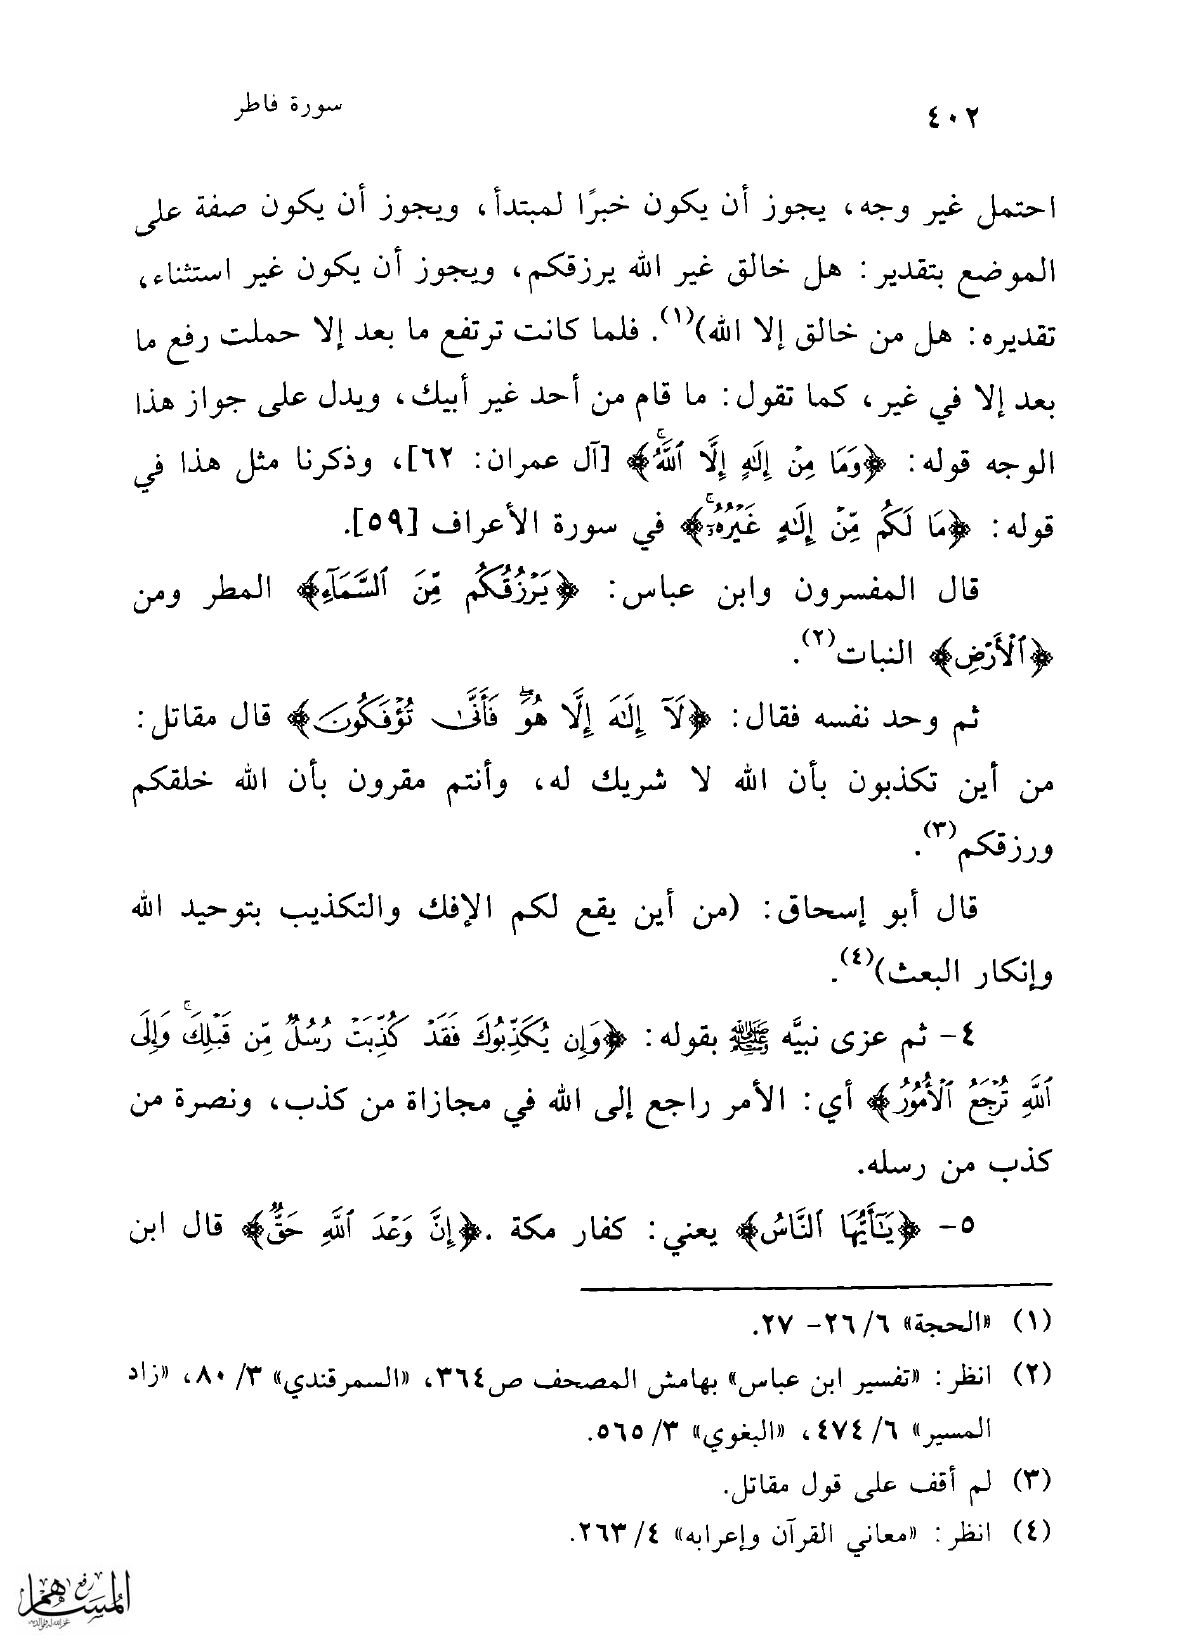 ٤٠٢
سورة فاطر
احتمل غير وجه، يجوز أن يكون خبرًا لمبتدأ، ويجوز أن يكون صفة على
الموضع بتقدير: هل خالق غير الله يرزقكم، ويجوز أن يكون غير استثناء،
تقديره: هل من خالق إلا الله)(١). فلما كانت ترتفع ما بعد إلا حملت رفع ما
بعد إلا في غير، كما تقول: ما قام من أحد غير أبيك، ويدل على جواز هذا
الوجه قوله: ﴿وَمَا مِنْ إِلَٰهٍ إِلَّا ٱللَّهُۚ﴾ [آل عمران: ٦٢]، وذكرنا مثل هذا في
قوله: ﴿مَا لَكُم مِّنْ إِلَٰهٍ غَيْرُهُۥۚ﴾ في سورة الأعراف [٥٩].
قال المفسرون وابن عباس: ﴿يَرْزُقُكُم مِّنَ ٱلسَّمَآءِ﴾ المطر ومن
﴿ٱلْأَرْضِ﴾ النبات(٢).
ثم وحد نفسه فقال: ﴿لَآ إِلَٰهَ إِلَّا هُوَۖ فَأَنَّىٰ تُؤْفَكُونَ﴾ قال مقاتل:
من أين تكذبون بأن الله لا شريك له، وأنتم مقرون بأن الله خلقكم
ورزقكم(٣).
قال أبو إسحاق: (من أين يقع لكم الإفك والتكذيب بتوحيد الله
وإنكار البعث)(٤).
٤- ثم عزى نبيَّه ﷺ بقوله: ﴿وَإِن يُكَذِّبُوكَ فَقَدْ كُذِّبَتْ رُسُلٌ مِّن قَبْلِكَۚ وَإِلَى
ٱللَّهِ تُرْجَعُ ٱلْأُمُورُ﴾ أي: الأمر راجع إلى الله في مجازاة من كذب، ونصرة من
كذب من رسله.
٥- ﴿يَٰٓأَيُّهَا ٱلنَّاسُ﴾ يعني: كفار مكة .﴿إِنَّ وَعْدَ ٱللَّهِ حَقٌّ﴾ قال ابن
(١) «الحجة» ٦/ ٢٦- ٢٧.
(٢) انظر: «تفسير ابن عباس» بهامش المصحف ص٣٦٤، «السمرقندي» ٣/ ٨٠، «زاد
المسير» ٦/ ٤٧٤، «البغوي» ٣/ ٥٦٥.
(٣) لم أقف على قول مقاتل.
(٤) انظر: «معاني القرآن وإعرابه» ٤/ ٢٦٣.